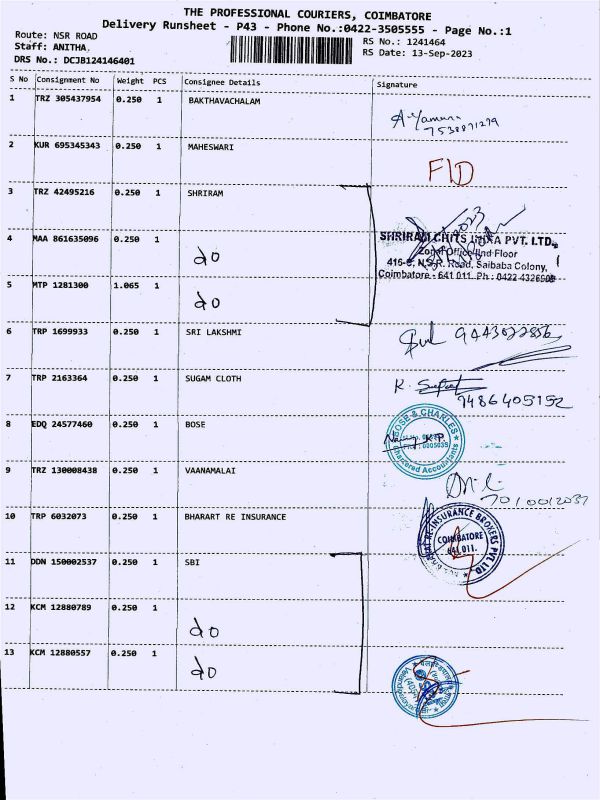 THE PROFESSIONAL COURIERS, COIMBATORE
Delivery Runsheet - P43 - Phone No.:0422-3505555 - Page No.:1
Route: NSR ROAD
RS No.: 1241464
Staff: ANITHA.
RS Date: 13-Sep-2023
DRS No.: DCJB124146401
S No Consignment No Weight PCS Consignee Details Signature
1 TRZ 305437954 0.250 1 BAKTHAVACHALAM
A. Yamuna
7538871279
2 KUR 695345343 0.250 1 MAHESWARI
F/D
3 TRZ 42495216 0.250 1 SHRIRAM
SHRIRAM CHITS INDIA PVT. LTD.,
4 MAA 861635096 0.250 1 do
Zonal Office IInd Floor
416-6, N.S.R. Road, Saibaba Colony,
Coimbatore - 641 011. Ph : 0422 4326909
5 MTP 1281300 1.065 1 do
6 TRP 1699933 0.250 1 SRI LAKSHMI
7 TRP 2163364 0.250 1 SUGAM CLOTH
K.
7486405152
8 EDQ 24577460 0.250 1 BOSE
BOSE & CHARLES
Chartered Accountants
9 TRZ 130008438 0.250 1 VAANAMALAI
7010012037
10 TRP 6032073 0.250 1 BHARART RE INSURANCE
RE-INSURANCE BROKERS PVT LTD
COIMBATORE
641 011.
11 DDN 150002537 0.250 1 SBI
12 KCM 12880789 0.250 1 do
13 KCM 12880557 0.250 1 do